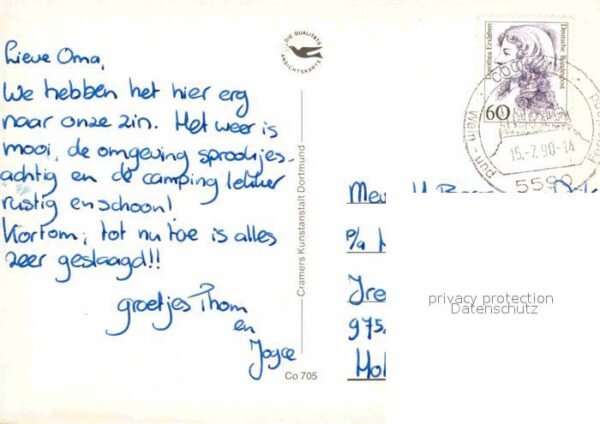 Lieve Oma,
We hebben het hier erg
naar onze zin. Het weer is
mooi, de omgeving sprookjes-
achtig en de camping lekker
rustig en schoon!
Kortom, tot nu toe is alles
zeer geslaagd!!
groetjes Thom
en
Joyce
DIE QUALITÄTS
ANSICHTSKARTE
Cramers Kunstanstalt Dortmund
Co 705
Dorothea Erxleben
Deutsche Bundespost
60
15.-7.90-14
5590
Wein - und
Mev
P/a
975
privacy protection
Datenschutz